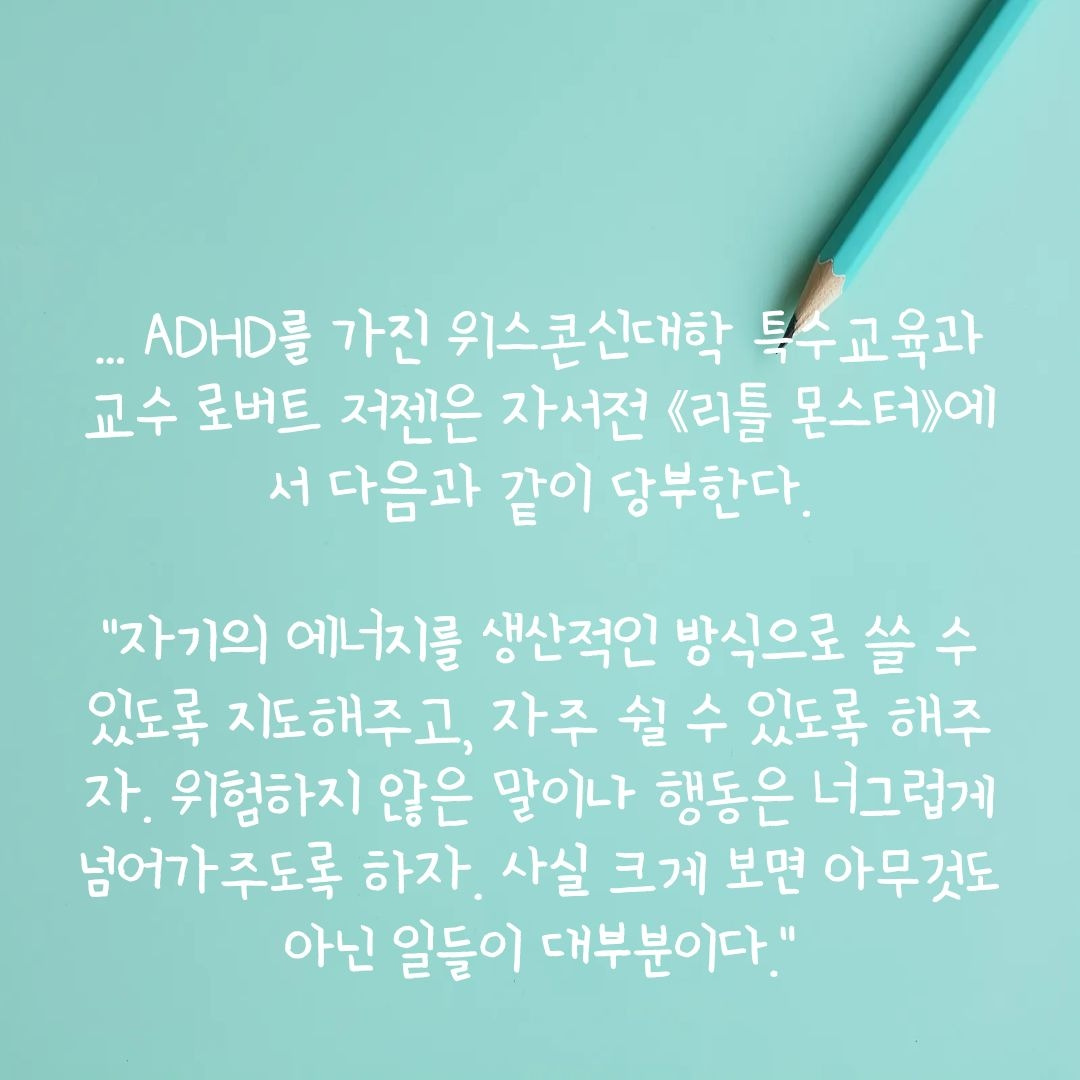 ... ADHD를 가진 위스콘신대학 특수교육과
교수 로버트 저젠은 자서전 《리틀 몬스터》에
서 다음과 같이 당부한다.
"자기의 에너지를 생산적인 방식으로 쓸 수
있도록 지도해주고, 자주 쉴 수 있도록 해주
자. 위험하지 않은 말이나 행동은 너그럽게
넘어가주도록 하자. 사실 크게 보면 아무것도
아닌 일들이 대부분이다."